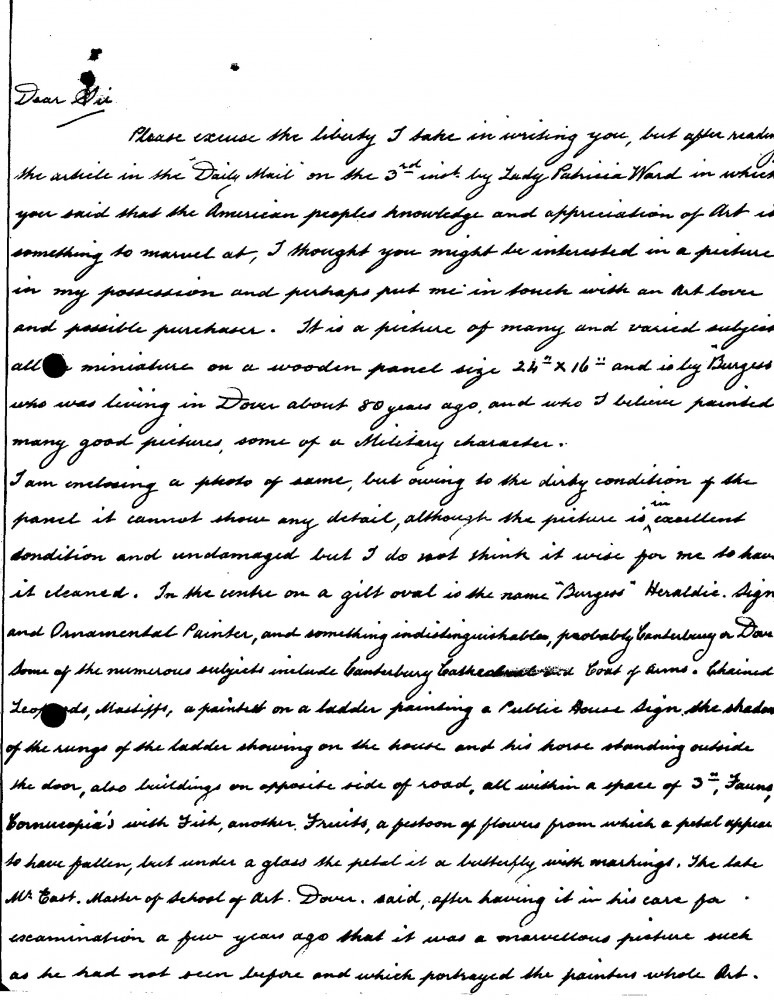 Dear Sir
Please excuse the liberty I take in writing you, but after readin
the article in the "Daily Mail" on the 3rd inst. by Lady Patricia Ward in which
you said that the American peoples knowledge and appreciation of Art is
something to marvel at, I thought you might be interested in a picture
in my possession and perhaps put me in touch with an Art lover
and possible purchaser. It is a picture of many and varied subjects
all miniature on a wooden panel size 24" x 16" and is by "Burgess
who was living in Dover about 80 years ago, and who I believe painted
many good pictures, some of a Military character.
I am enclosing a photo of same, but owing to the dirty condition of the
panel it cannot show any detail, although the picture is in excellent
condition and undamaged but I do not think it wise for me to have
it cleaned. In the centre on a gilt oval is the name "Burgess" Heraldic. Sign
and Ornamental Painter, and something indistinguishable, probably Canterbury or Dove
Some of the numerous subjects include Canterbury Cathedral and Coat of Arms. Chained
Leopards, Mastiffs, a painter on a ladder painting a Public House Sign, the shadow
of the rungs of the ladder showing on the house and his horse standing outside
the door, also buildings on opposite side of road, all within a space of 3", Fauns,
Cornucopia's with Fish, another, Fruits, a festoon of flowers from which a petal appear
to have fallen, but under a glass the petal it a butterfly with markings. The late
Mr East. Master of School of Art. Dover. said, after having it in his care for
examination a few years ago that it was a marvellous picture such
as he had not seen before and which portrayed the painters whole Art.